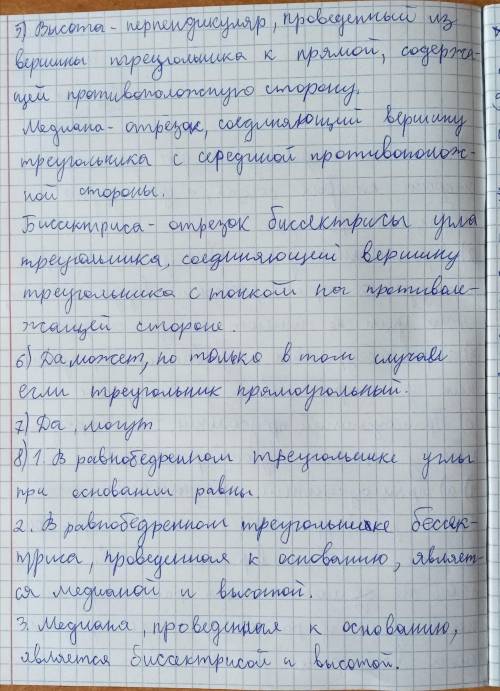 5) Высота - перпендикуляр, проведенный из
вершины треугольника к прямой, содержа-
щей противоположную сторону.
Медиана - отрезок, соединяющий вершину
треугольника с серединой противополож-
ной стороны.
Биссектриса - отрезок биссектрисы угла
треугольника, соединяющей вершину
треугольника с точкой на противоле-
жащей стороне.
6) Да может, но только в том случае
если треугольник прямоугольный.
7) Да, могут
8) 1. В равнобедренном треугольнике углы
при основании равны.
2. В равнобедренном треугольнике бессек-
триса, проведенная к основанию, являет-
ся медианой и высотой.
3. Медиана, проведенная к основанию,
является биссектрисой и высотой.